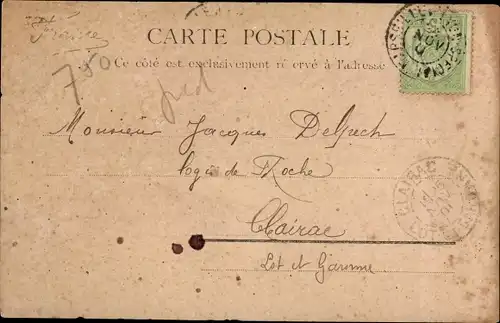 France
CARTE POSTALE
Ce côté est exclusivement ré ervé à l'adresse
750
Monsieur Jacques Delpech
logis de Roche
Clairac
Lot et Garonne
CLAIRAC